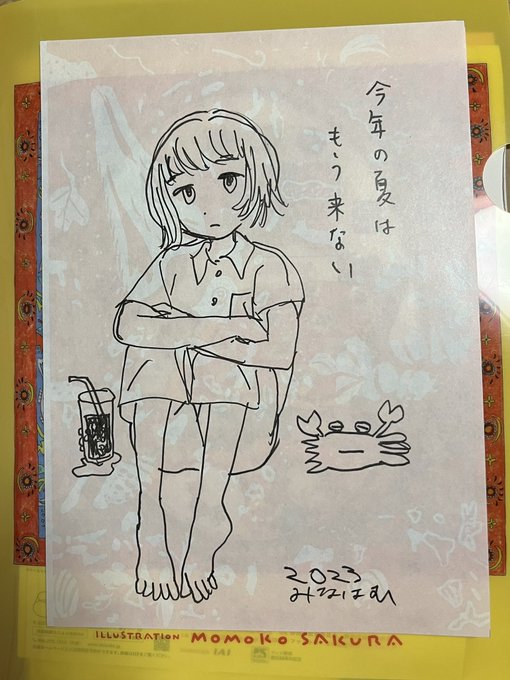 今年の夏は
もう来ない
2023
みなはむ
ILLUSTRATION MOMOKO SAKURA